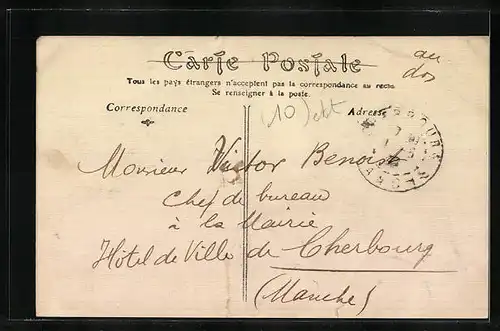 Carte Postale
au
dos
Tous les pays étrangers n'acceptent pas la correspondance au recto
Se renseigner à la poste.
Correspondance
Adresse
(10)
Monsieur Victor Benoist
Chef de bureau
à la Mairie
Hôtel de Ville de Cherbourg
(Manche)